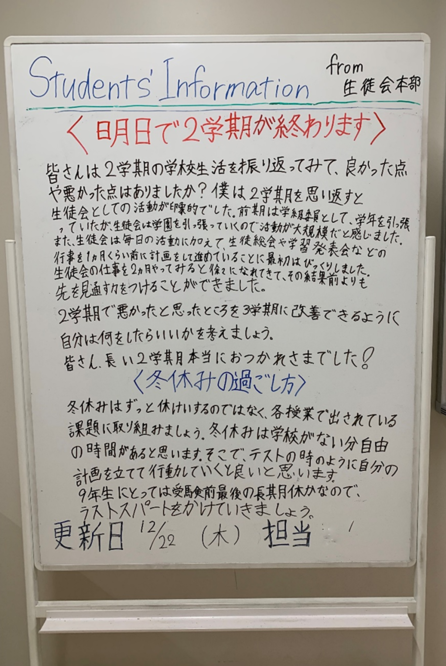 Students' Information
from
生徒会本部
〈明日で2学期が終わります〉
皆さんは2学期の学校生活を振り返ってみて、良かった点
や悪かった点はありましたか?僕は2学期を思い返すと
生徒会としての活動が印象的でした。前期は学級委員として、学年を引っ張
っていたが、生徒会は学園を引っ張っていくので活動が大規模だと感じました。
また、生徒会は毎日の活動に加えて、生徒総会や学習発表会などの
行事を1ヵ月くらい前に計画をして進めていることに最初はびっくりしました。
生徒会の仕事を2ヵ月やってみると徐々になれてきて、その結果前よりも
先を見通す力をつけることができました。
2学期で悪かったと思ったところを3学期に改善できるように
自分は何をしたらいいかを考えましょう。
皆さん、長い2学期本当におつかれさまでした!
〈冬休みの過ごし方〉
冬休みはずっと休けいするのではなく、各授業で出されている
課題に取り組みましょう。冬休みは学校がない分自由
の時間があると思います。そこで、テストの時のように自分の
計画を立てて行動していくと良いと思います。
9年生にとっては受験前最後の長期休みなので、
ラストスパートをかけていきましょう。
更新日 12/22 (木) 担当